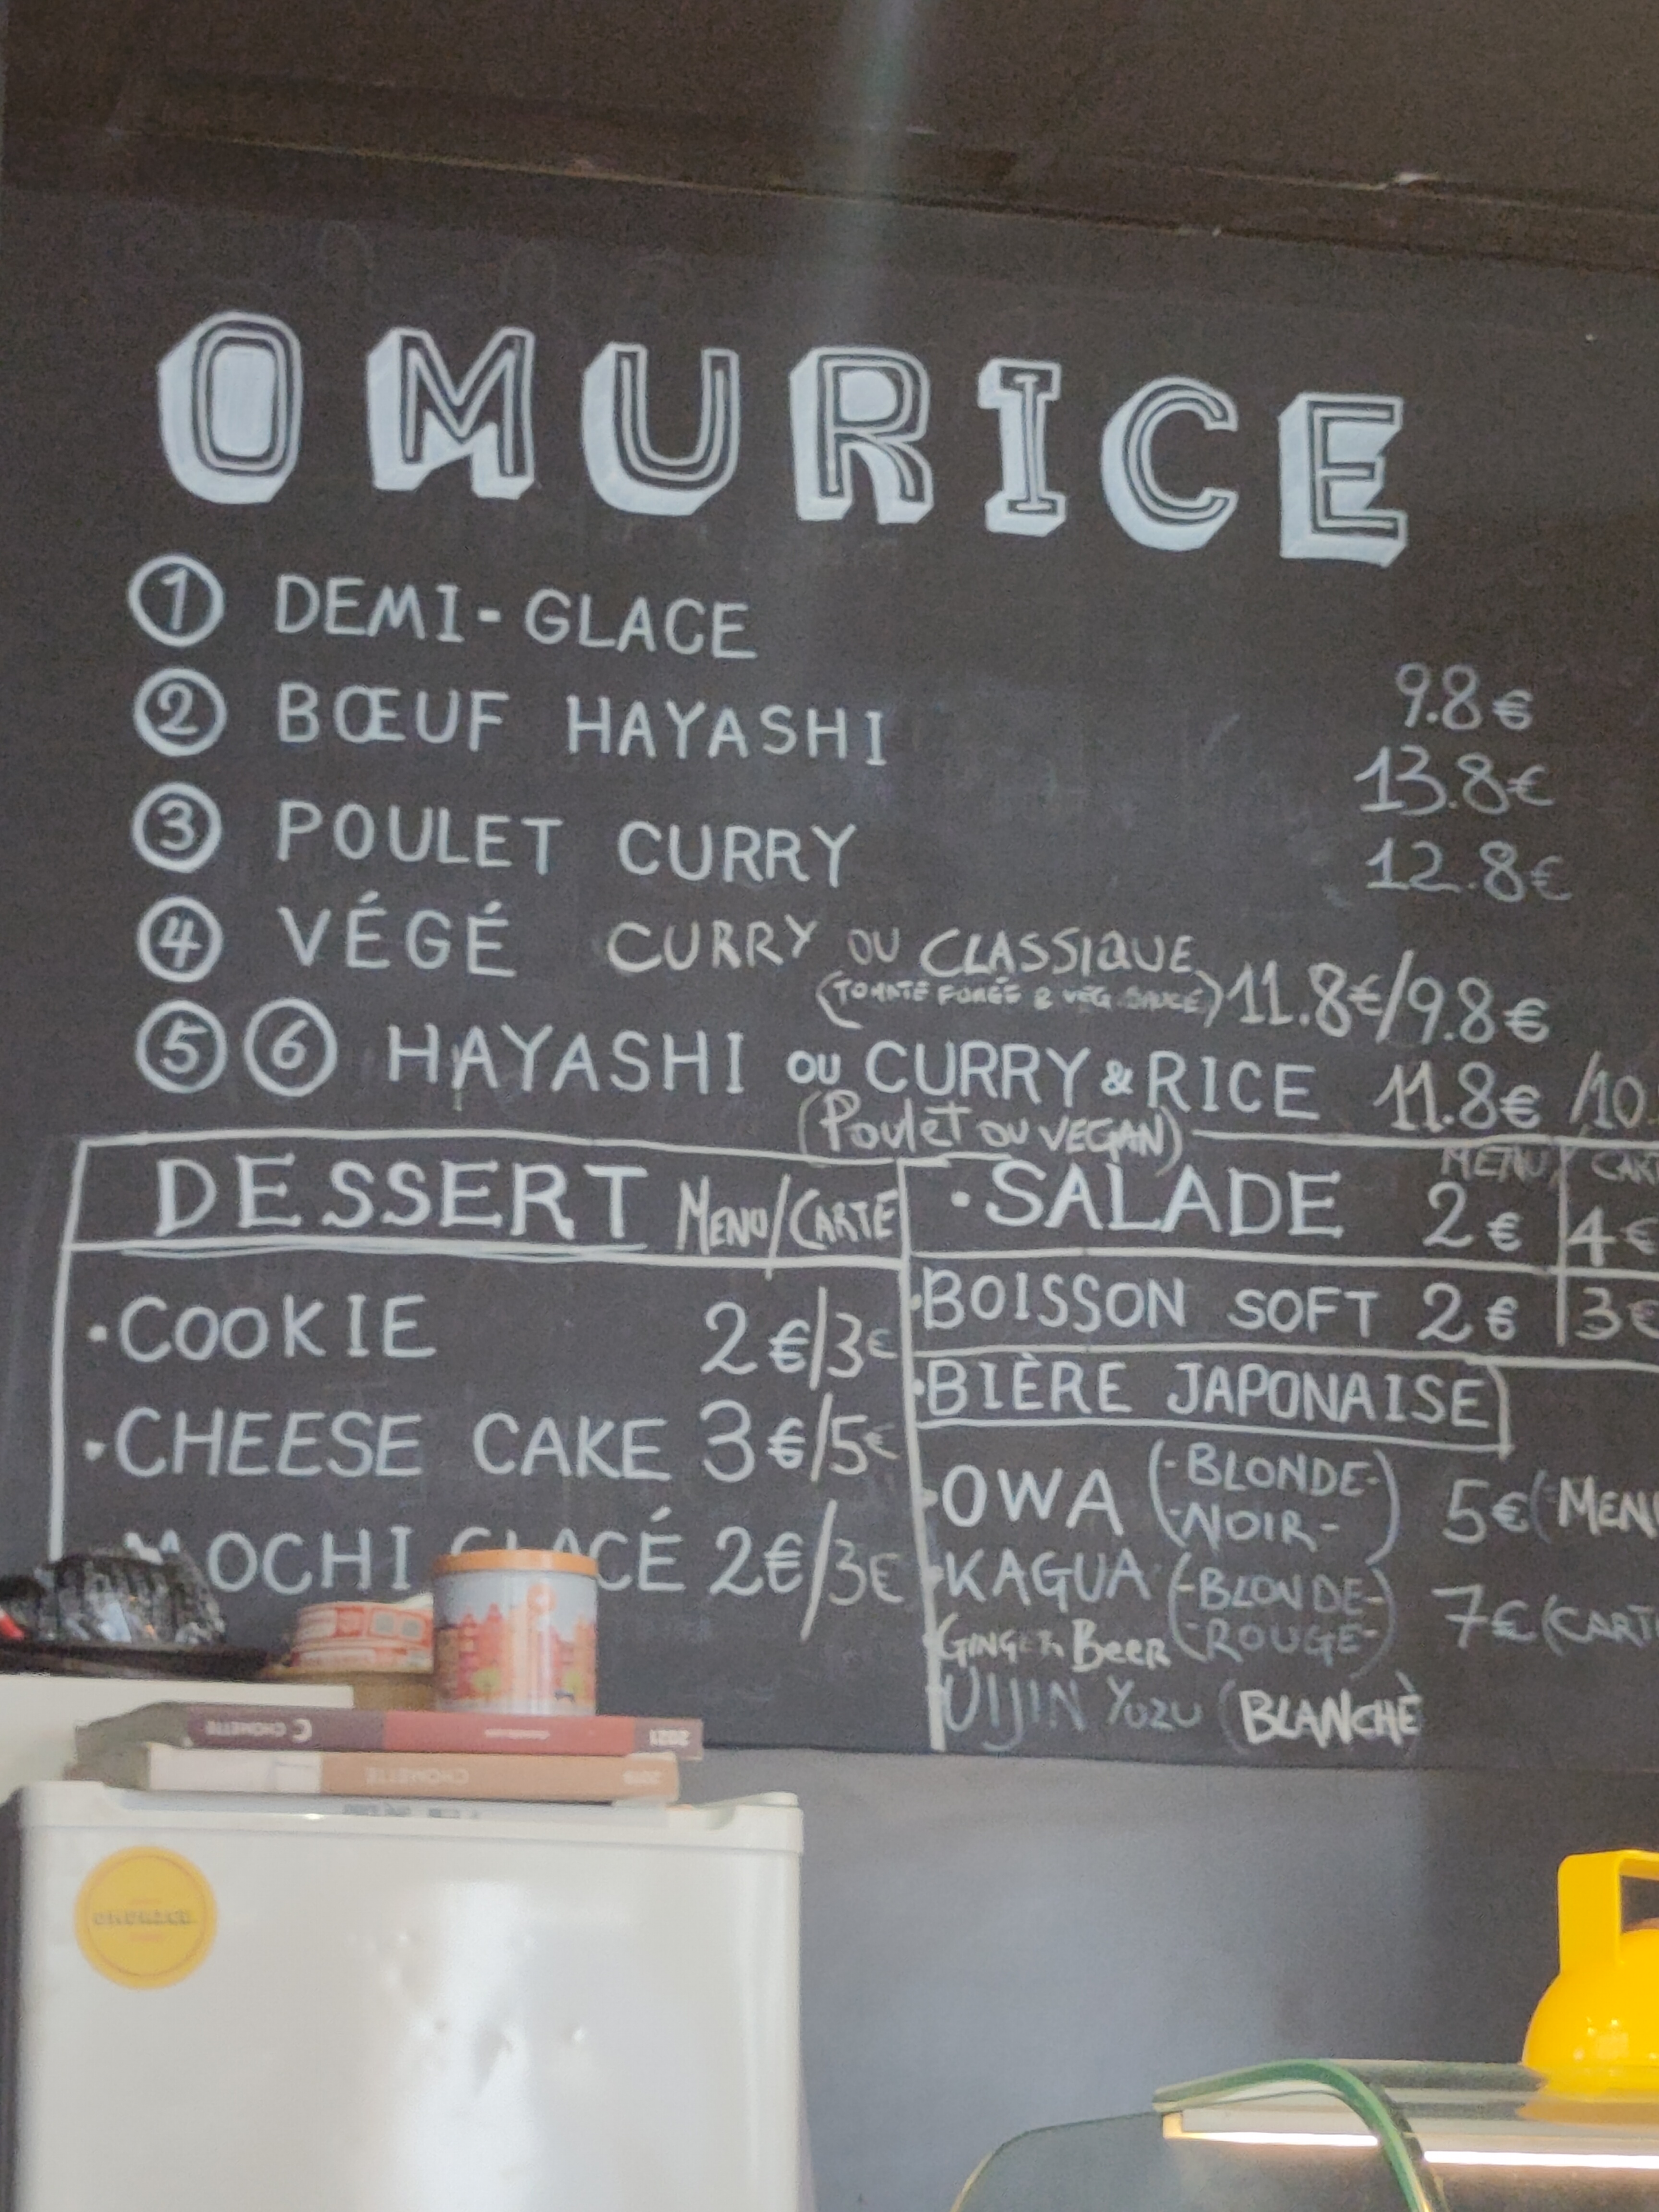 OMURICE
① DEMI-GLACE 9.8€
② BŒUF HAYASHI 13.8€
③ POULET CURRY 12.8€
④ VÉGÉ CURRY OU CLASSIQUE 11.8€/9.8€
(TOMATE & VÉG. SAUCE)
⑤ ⑥ HAYASHI OU CURRY & RICE 11.8€ /10.
(Poulet OU VEGAN)
DESSERT MENU/CARTE
·COOKIE 2€/3€
·CHEESE CAKE 3€/5€
MOCHI GLACÉ 2€/3€
MENU CART
·SALADE 2€ 4€
·BOISSON SOFT 2€ 3€
·BIÈRE JAPONAISE
·OWA (-BLONDE-
-NOIR-) 5€ (MENU
·KAGUA (-BLONDE-
-ROUGE-) 7€ (CARTE
GINGER BEER
UIJIN YUZU (BLANCHE
CHOMETTE 2021
CHOMETTE 2019
OMURICE